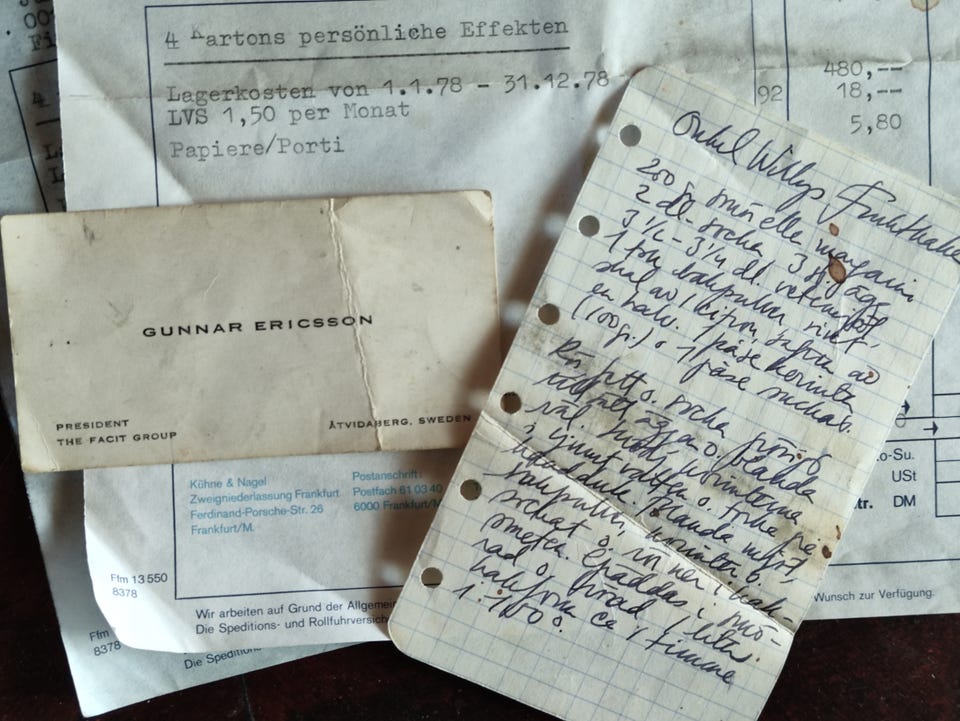 00
Fi
4
4 Kartons persönliche Effekten
Lagerkosten von 1.1.78 - 31.12.78
LVS 1,50 per Monat
Papiere/Porti
92
480,--
18,--
5,80
GUNNAR ERICSSON
PRESIDENT
THE FACIT GROUP
ÅTVIDABERG, SWEDEN
Onkel Willys
200 gr smör elle margarin
2 dl socker, 3 st ägg
3 1/2 - 3 3/4 dl. vetemjöl,
1 tsk bakpulver, rivet
skal av 1 citron, saften av
en halv. 1 påse korinter
(100gr.) o 1 påse suckat.
Rör fett o. socker pösigt
tillsätt äggen o. blanda
väl.
i ljumt vatten o. torka
handduk. Blanda mjöl,
bakpulver, korinter o.
suckat o. rör ner i
smeten. Gräddas i smö-
rad o. bröad 1 liters
kakform ca 1 timme
i 150°.
Kühne & Nagel
Zweigniederlassung Frankfurt
Ferdinand-Porsche-Str. 26
Frankfurt/M.
Postanschrift:
Postfach 61 03 40
6000 Frankfurt/M
o-Su.
USt
tr. DM
Ffm 13 550
8378
Wir arbeiten auf Grund der Allgemei
Die Speditions- und Rollfuhrversich
Wunsch zur Verfügung.
Ffm
8378
Die Speditions-